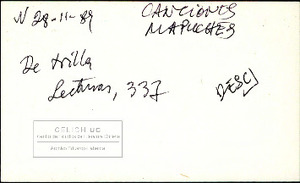 N 28-11-89
CANCIONES
MAPUCHES
De trilla
Lecturas, 337
DESC
CELICH UC